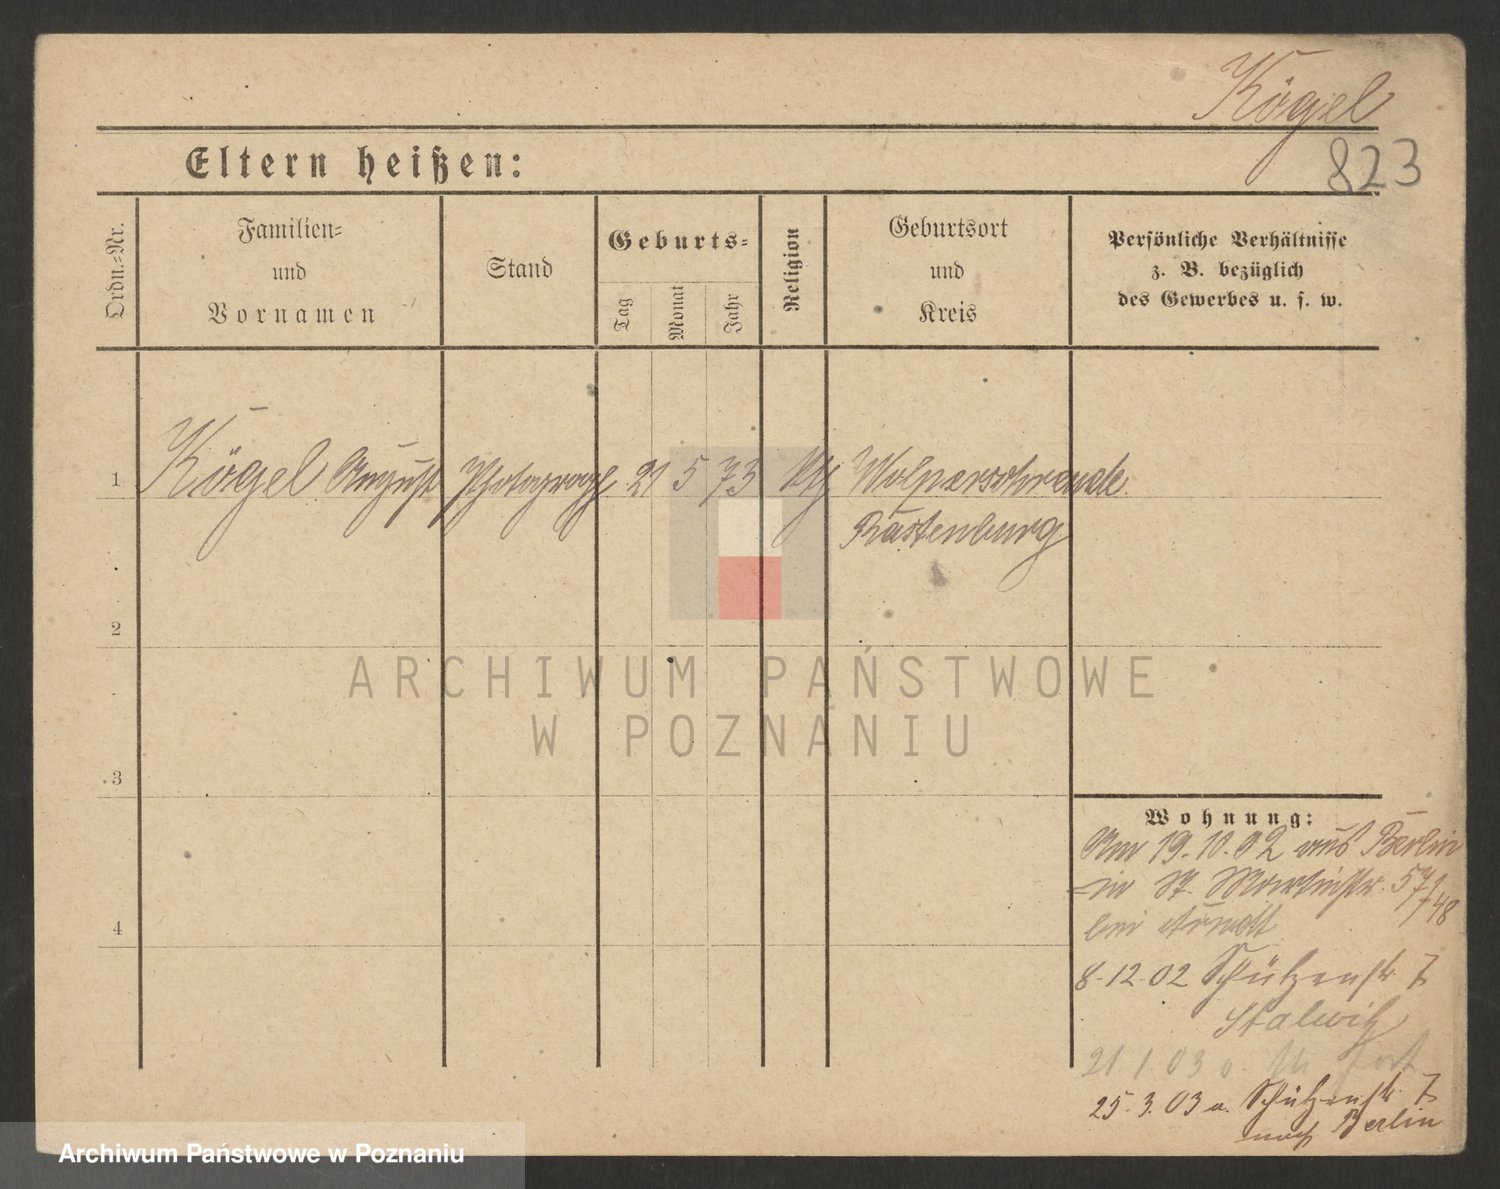 Kögel
823
Eltern heißen:
Ordn.-Nr.
Familien-
und
Vornamen
Stand
Geburts-
Tag
Monat
Jahr
Religion
Geburtsort
und
Kreis
Persönliche Verhältnisse
z. B. bezüglich
des Gewerbes u. s. w.
1
Kögel August Photograph 21 5 73
Rastenburg
2
ARCHIWUM PAŃSTWOWE
W POZNANIU
3
Wohnung:
Am 19.10.02 aus Berlin
in St. Martinstr. 57/48
bei Arndt
4
8.12.02 Schützenstr 7
21 1 03 fort
25.3.03 a. Schützenstr. 7
nach Berlin
Archiwum Państwowe w Poznaniu